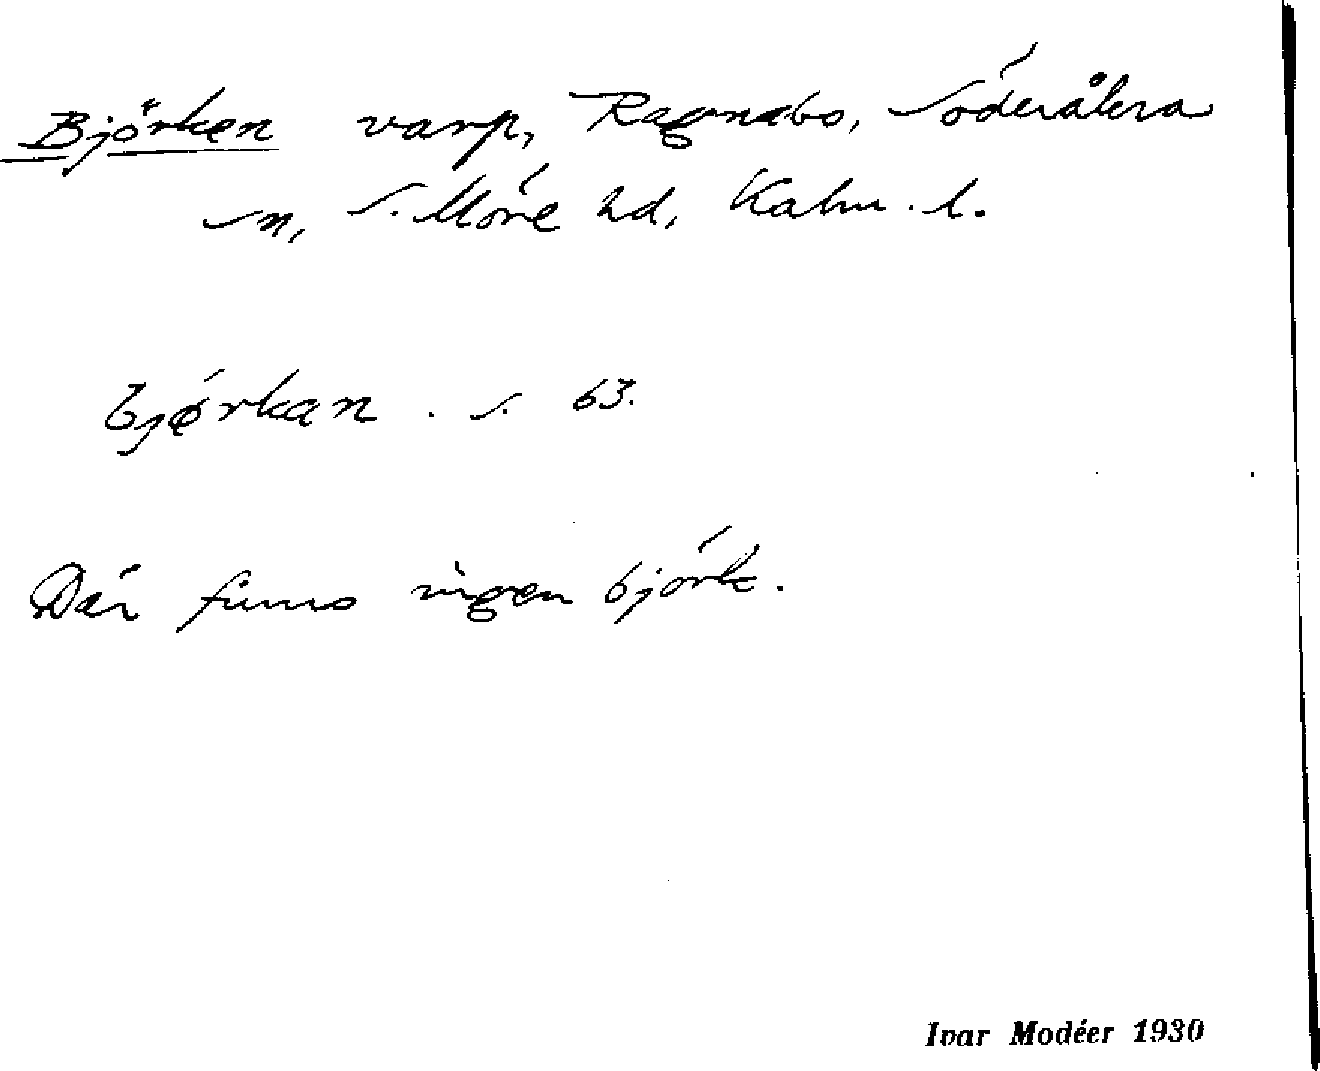 Björken varp, Ragnabo, Söderåkra
sn, S. Möre hd, Kalm. l.
bjørkan . s. 63.
Där finns ingen björk.
Ivar Modéer 1930